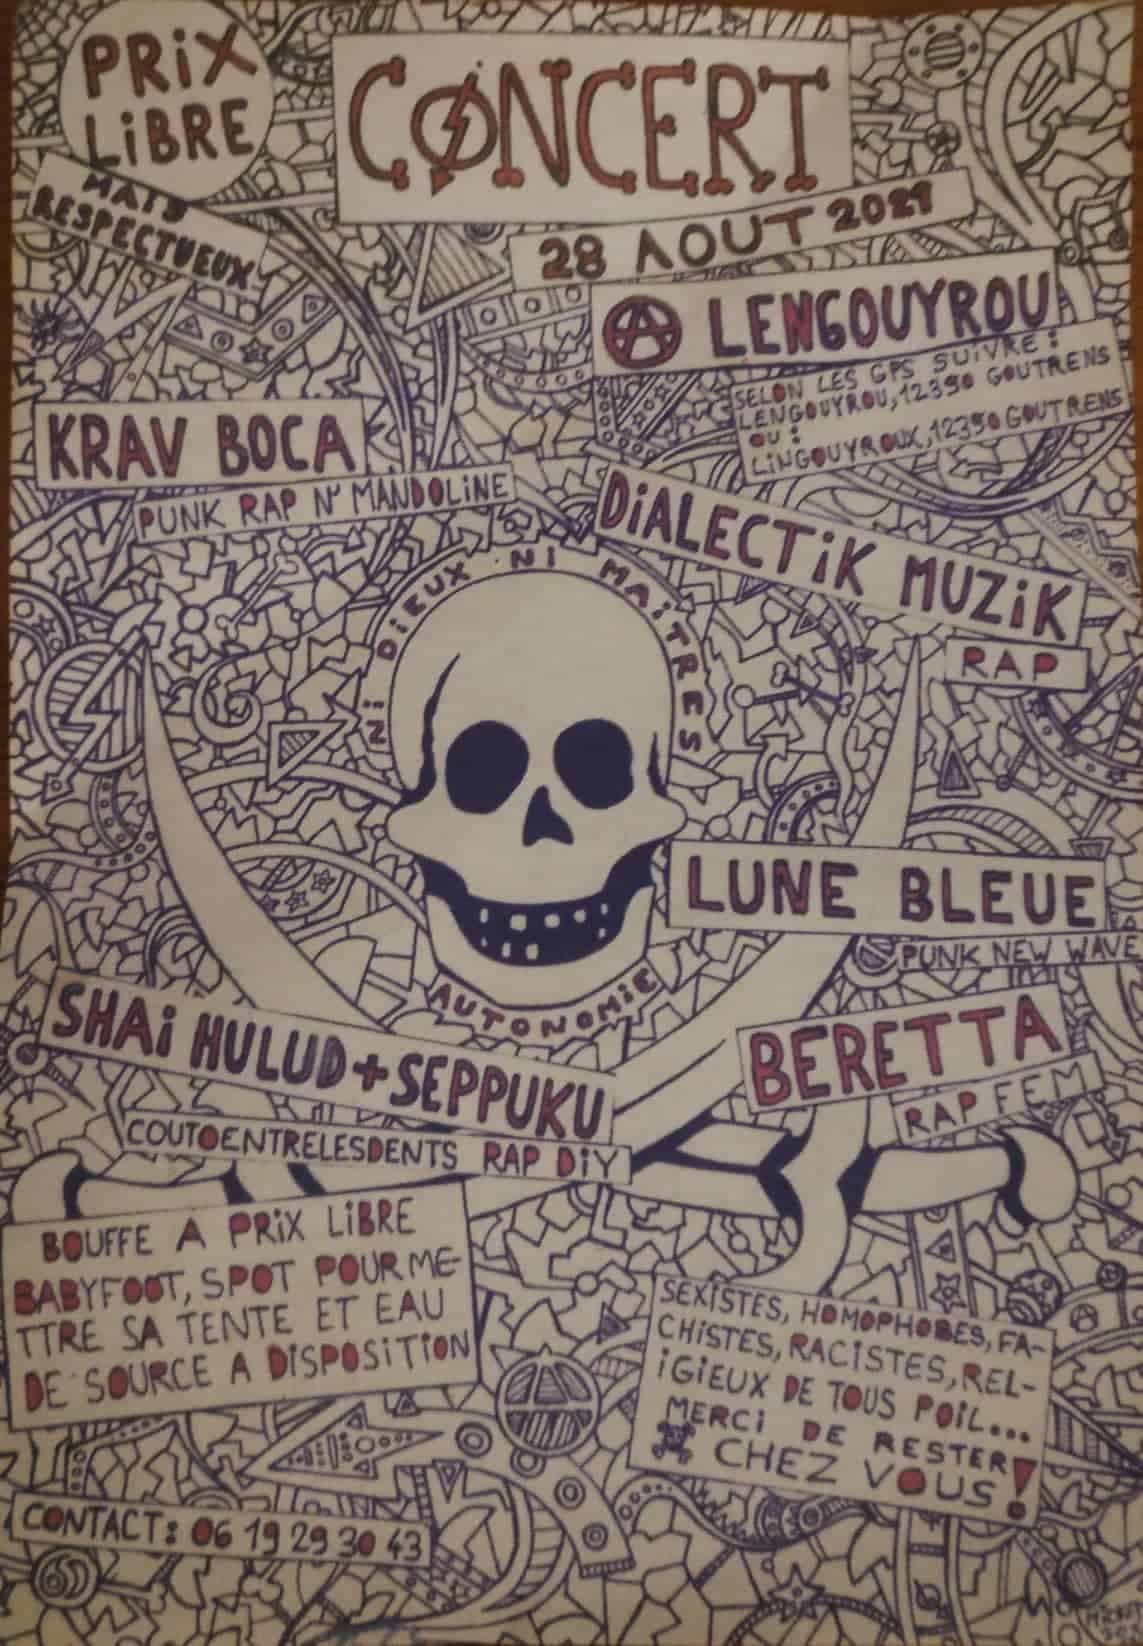 PRiX
LiBRE
MAIS
RESPECTUEUX
CONCERT
28 AOUT 2021
A LENGOUYROU
SELON LES GPS SUIVRE :
LENGOUYROU, 12390 GOUTRENS
OU :
LiNGOUYROUX, 12390 GOUTRENS
KRAV BOCA
PUNK RAP N' MANDOLiNE
DiALECTiK MUZiK
RAP
Ni DiEUX Ni MAiTRES
AUTONOMiE
LUNE BLEUE
PUNK NEW WAVE
SHAi HULUD + SEPPUKU
COUTOENTRELESDENTS RAP DiY
BERETTA
RAP FEM
BOUFFE A PRiX LiBRE
BABYFOOT, SPOT POUR ME-
TTRE SA TENTE ET EAU
DE SOURCE A DiSPOSiTiON
SEXiSTES, HOMOPHOBES, FA-
CHiSTES, RACiSTES, REL-
iGiEUX DE TOUS POiL...
MERCi DE RESTER
CHEZ VOUS !
CONTACT : 06 19 29 30 43